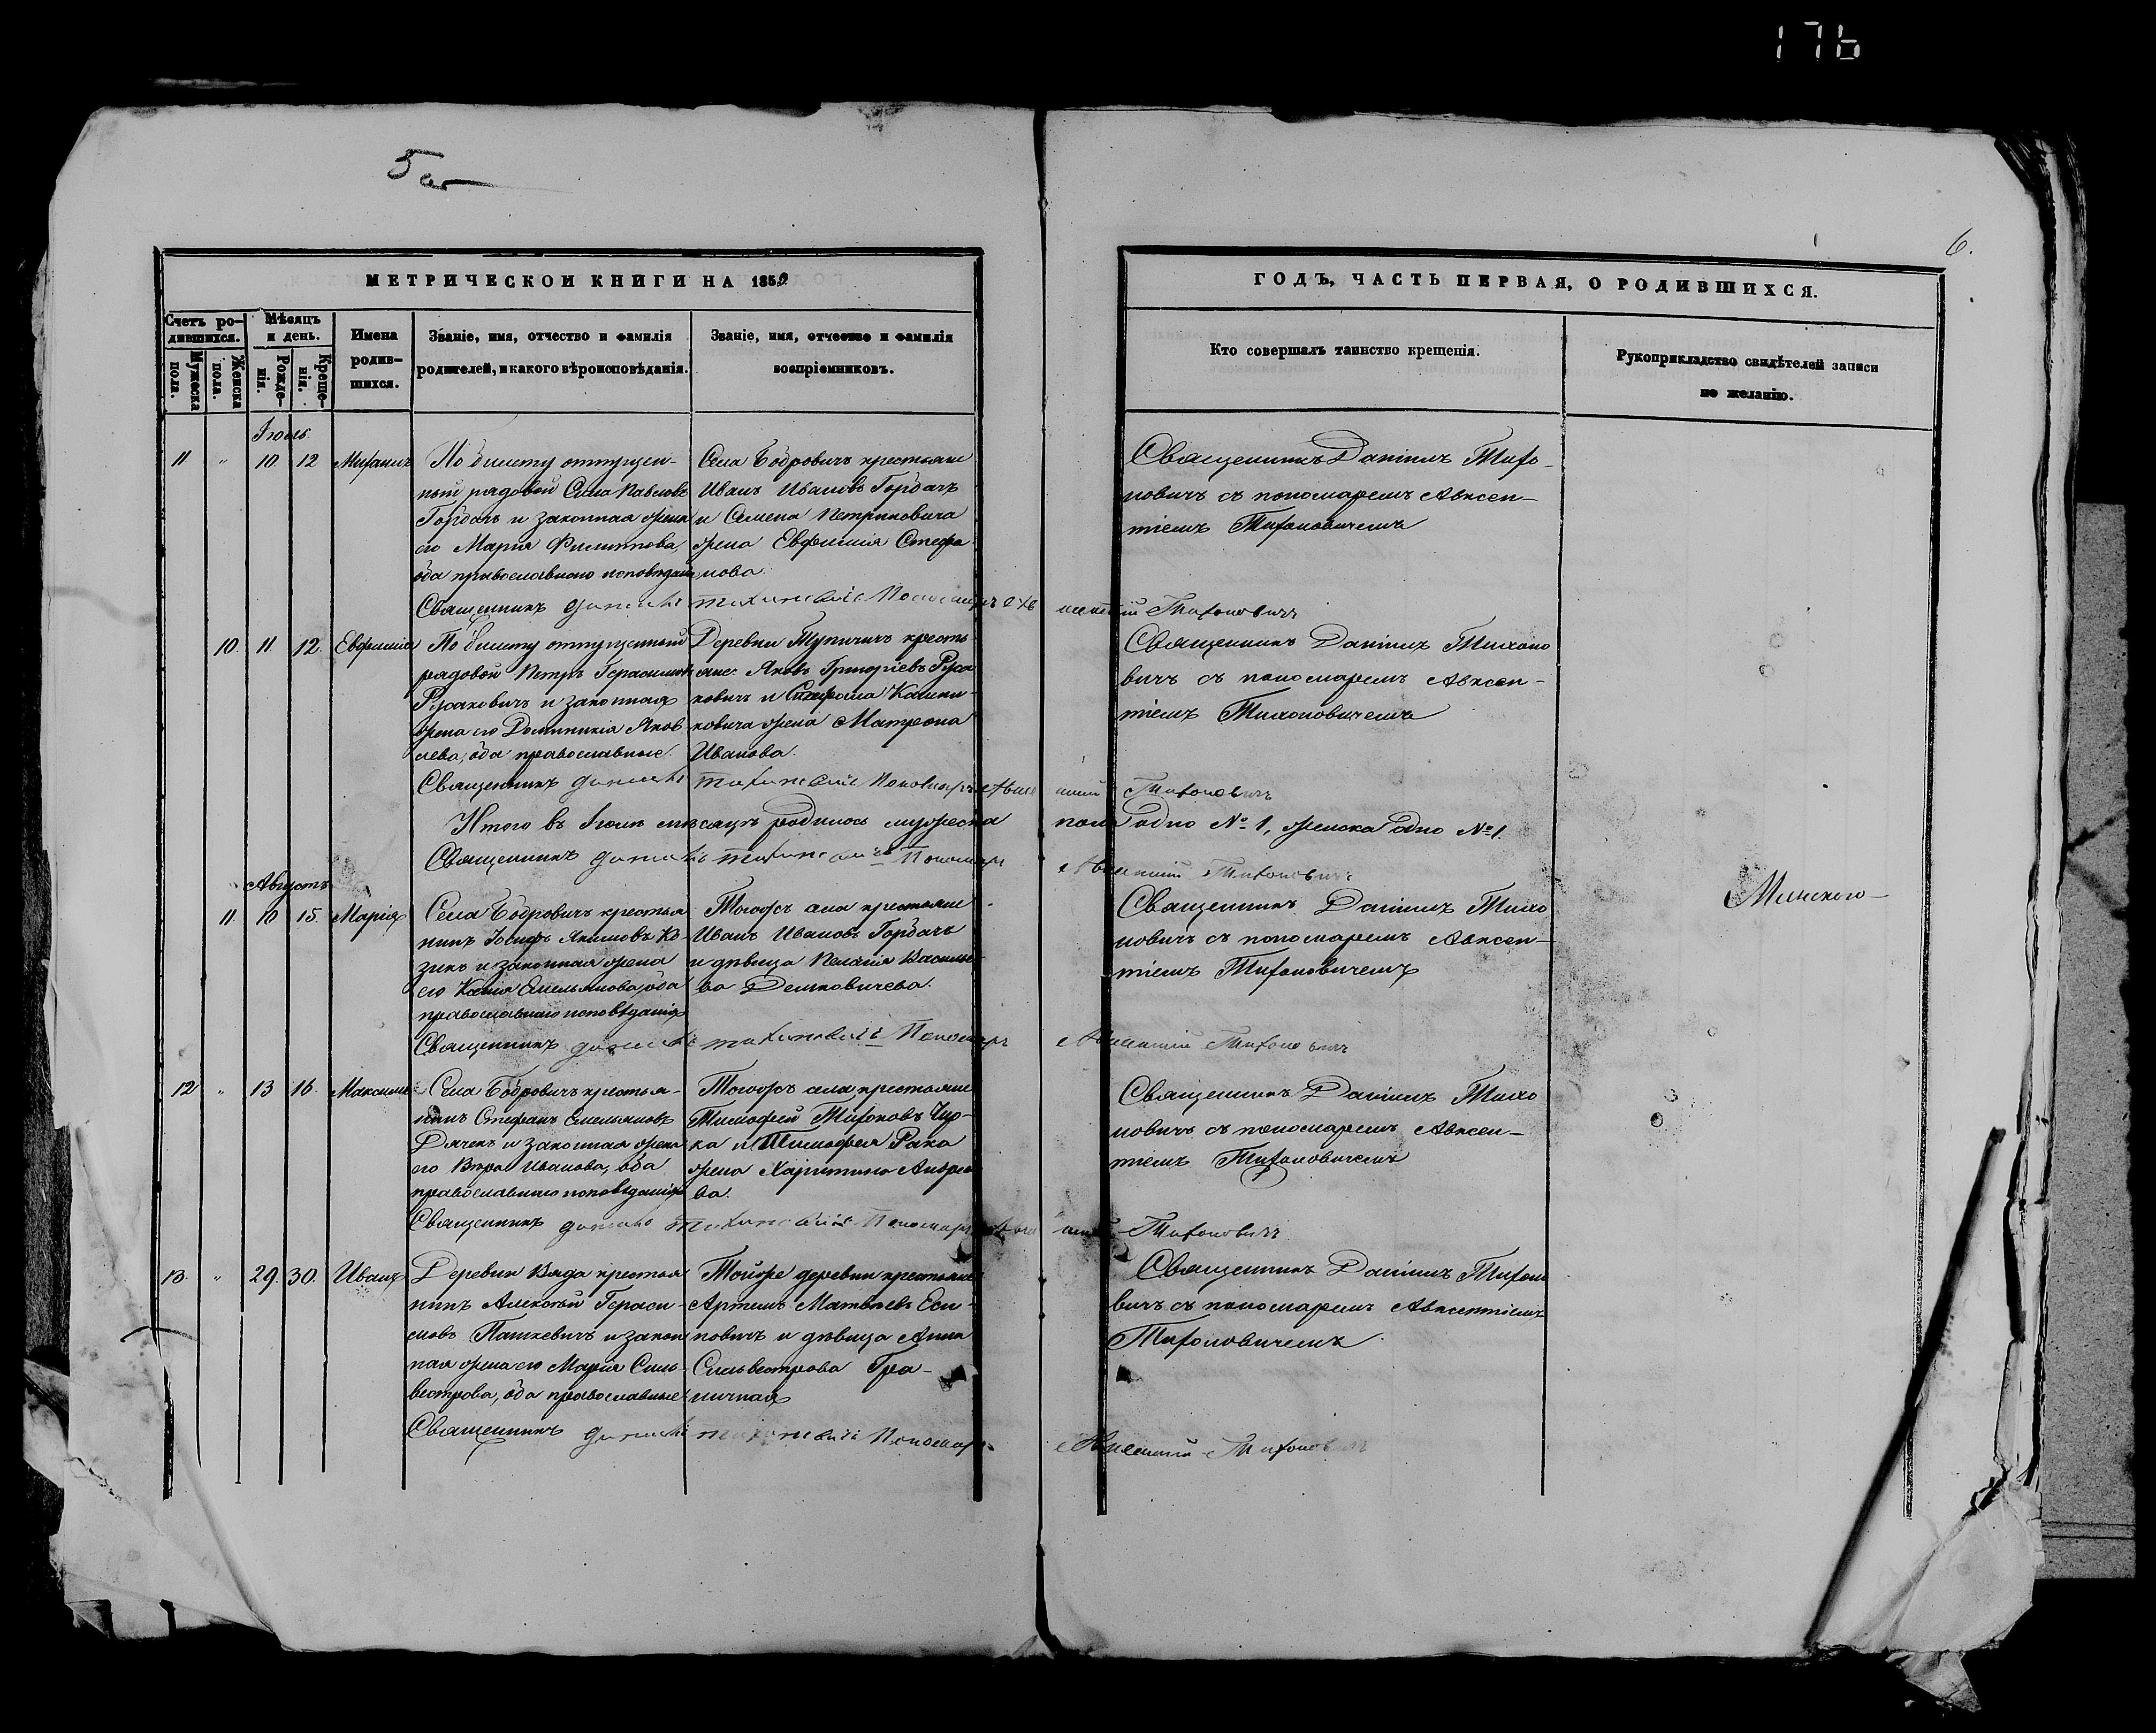 176
5 об
6.
МЕТРИЧЕСКОИ КНИГИ НА 1859
ГОДЪ, ЧАСТЬ ПЕРВАЯ, О РОДИВШИХСЯ.
Счетъ ро-
дившихся.
Мужеска
пола.
Женска
пола.
Мѣсяцъ
и день.
Рожде-
нія.
Креще-
нія.
Имена
родив-
шихся.
Званіе, имя, отчество и фамилія
родителей, и какого вѣроисповѣданія.
Званіе, имя, отчество и фамилія
воспріемниковъ.
Кто совершалъ таинство крещенія.
Рукоприкладство свидѣтелей записи
по желанію.
Іюль
11 " 10 12
По билету отпущен-
ный рядовой Сила Павловъ
Горбачъ и законная жена
его Марія Филиппова,
оба православнаго исповѣданія
Села Бобровичъ крестьяне
Иванъ Ивановъ Горбачъ
и Семена Петриковича
жена Евфимія Стефа
нова.
Священникъ Даніилъ Тихо-
новичъ съ пономаремъ Авксен-
тіемъ Тихоновичемъ
Священникъ Тихоновичъ
10. 11 12. Евфимія
По билету отпущенный
рядовой Петръ Герасимовъ
Русаковичъ и законная
жена его Домникія Яков
лева, оба православные.
Деревни Тупичичъ кресть
яне: Яковъ Григоріевъ Руса
ковичъ и Кашки-
ковича жена Матрона
Иванова.
Священникъ Даніилъ Тихоно
вичъ съ пономаремъ Авксен-
тіемъ Тихоновичемъ
Священникъ Пономарь Тихоновичъ
Итого въ Іюлѣ мѣсяцѣ родилось мужеска пола одно № 1, женска одно № 1.
Священникъ Пономарь Тихоновичъ
Августъ
11 10 15. Марія
Села Бобровичъ крестья
нинъ Іосифъ Якимовъ Ко-
зикъ и законная жена
его Ксенія Емельянова, оба
православнаго исповѣданія
Тогожъ села крестьяне
Иванъ Ивановъ Горбачъ
и дѣвица Пелагія Василье
ва Демковичева.
Священникъ Даніилъ Тихо
новичъ съ пономаремъ Авксен-
тіемъ Тихоновичемъ
Минского
Священникъ Пономарь Тихоновичъ
12 " 13 16. Максимъ
Села Бобровичъ крестья-
нинъ Стефанъ Емельяновъ
и законная жена
его Вѣра Иванова, оба
православнаго исповѣданія
Тогожъ села крестьяне
Тимофей Тихоновъ
ка и Тимофея Рака
жена Харитина Андрее
ва.
Священникъ Даніилъ Тихо
новичъ съ пономаремъ Авксен-
тіемъ Тихоновичемъ
Священникъ Пономарь Тихоновичъ
13. " 29. 30. Иванъ
Деревни Вяда крестья
нинъ Алексѣй Гераси-
мовъ Пашкевичъ и закон
ная жена его Марія Силь-
вестрова, оба православные
Тойже деревни крестьяне
Артемъ Матвѣевъ Еси-
повичъ и дѣвица Анна
Сильвестрова Гра-
ничная
Священникъ Даніилъ Тихоно
вичъ съ пономаремъ Авксентіемъ
Тихоновичемъ
Священникъ Пономарь Тихоновичъ